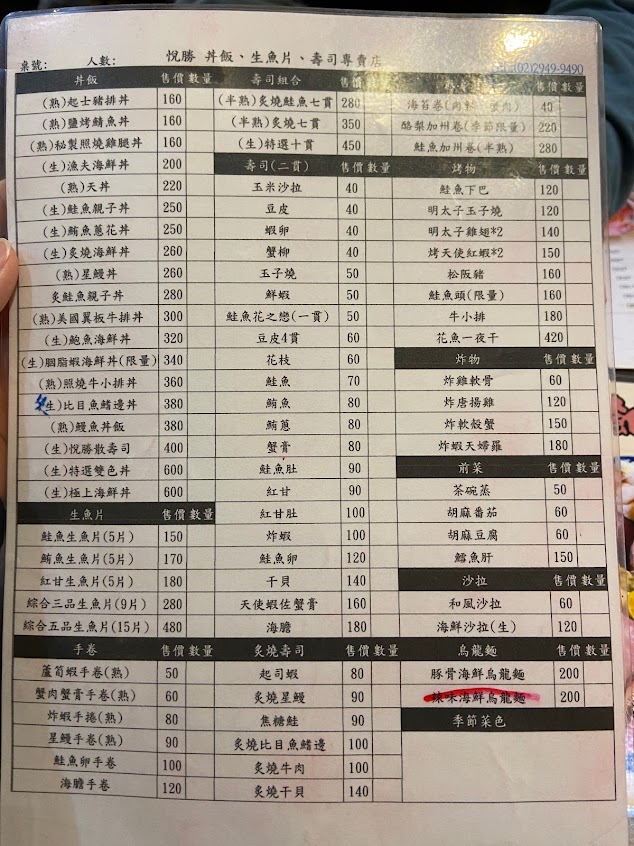 悅勝 丼飯、生魚片、壽司專賣店
桌號: 人數: (02)2949-9490
丼飯 售價 數量
(熟)起士豬排丼 160
(熟)鹽烤鯖魚丼 160
(熟)秘製照燒雞腿丼 160
(生)漁夫海鮮丼 200
(熟)天丼 220
(生)鮭魚親子丼 250
(生)鮪魚蔥花丼 250
(生)炙燒海鮮丼 260
(熟)星鰻丼 260
炙鮭魚親子丼 280
(熟)美國翼板牛排丼 300
(生)鮑魚海鮮丼 320
(生)胭脂蝦海鮮丼(限量) 340
(熟)照燒牛小排丼 360
(生)比目魚鰭邊丼 380
(熟)鰻魚丼飯 380
(生)悅勝散壽司 400
(生)特選雙色丼 600
(生)極上海鮮丼 600
生魚片 售價 數量
鮭魚生魚片(5片) 150
鮪魚生魚片(5片) 170
紅甘生魚片(5片) 180
綜合三品生魚片(9片) 280
綜合五品生魚片(15片) 480
手卷 售價 數量
蘆筍蝦手卷(熟) 50
蟹肉蟹膏手卷(熟) 60
炸蝦手捲(熟) 80
星鰻手卷(熟) 90
鮭魚卵手卷 100
海膽手卷 120
壽司組合 售價 數量
(半熟)炙燒鮭魚七貫 280
(半熟)炙燒七貫 350
(生)特選十貫 450
壽司(二貫) 售價 數量
玉米沙拉 40
豆皮 40
蝦卵 40
蟹柳 40
玉子燒 50
鮮蝦 50
鮭魚花之戀(一貫) 50
豆皮4貫 60
花枝 60
鮭魚 70
鮪魚 80
鮪蔥 80
蟹膏 80
鮭魚肚 90
紅甘 90
紅甘肚 100
炸蝦 100
鮭魚卵 120
干貝 140
天使蝦佐蟹膏 160
海膽 180
炙燒壽司 售價 數量
起司蝦 80
炙燒星鰻 90
焦糖鮭 90
炙燒比目魚鰭邊 100
炙燒牛肉 100
炙燒干貝 140
售價 數量
海苔卷 40
酪梨加州卷(季節限量) 220
鮭魚加州卷(半熟) 280
烤物 售價 數量
鮭魚下巴 120
明太子玉子燒 120
明太子雞翅*2 140
烤天使紅蝦*2 150
松阪豬 160
鮭魚頭(限量) 160
牛小排 180
花魚一夜干 420
炸物 售價 數量
炸雞軟骨 60
炸唐揚雞 120
炸軟殼蟹 150
炸蝦天婦羅 180
前菜 售價 數量
茶碗蒸 50
胡麻番茄 60
胡麻豆腐 60
鱈魚肝 150
沙拉 售價 數量
和風沙拉 60
海鮮沙拉(生) 120
烏龍麵 售價 數量
豚骨海鮮烏龍麵 200
辣味海鮮烏龍麵 200
季節菜色